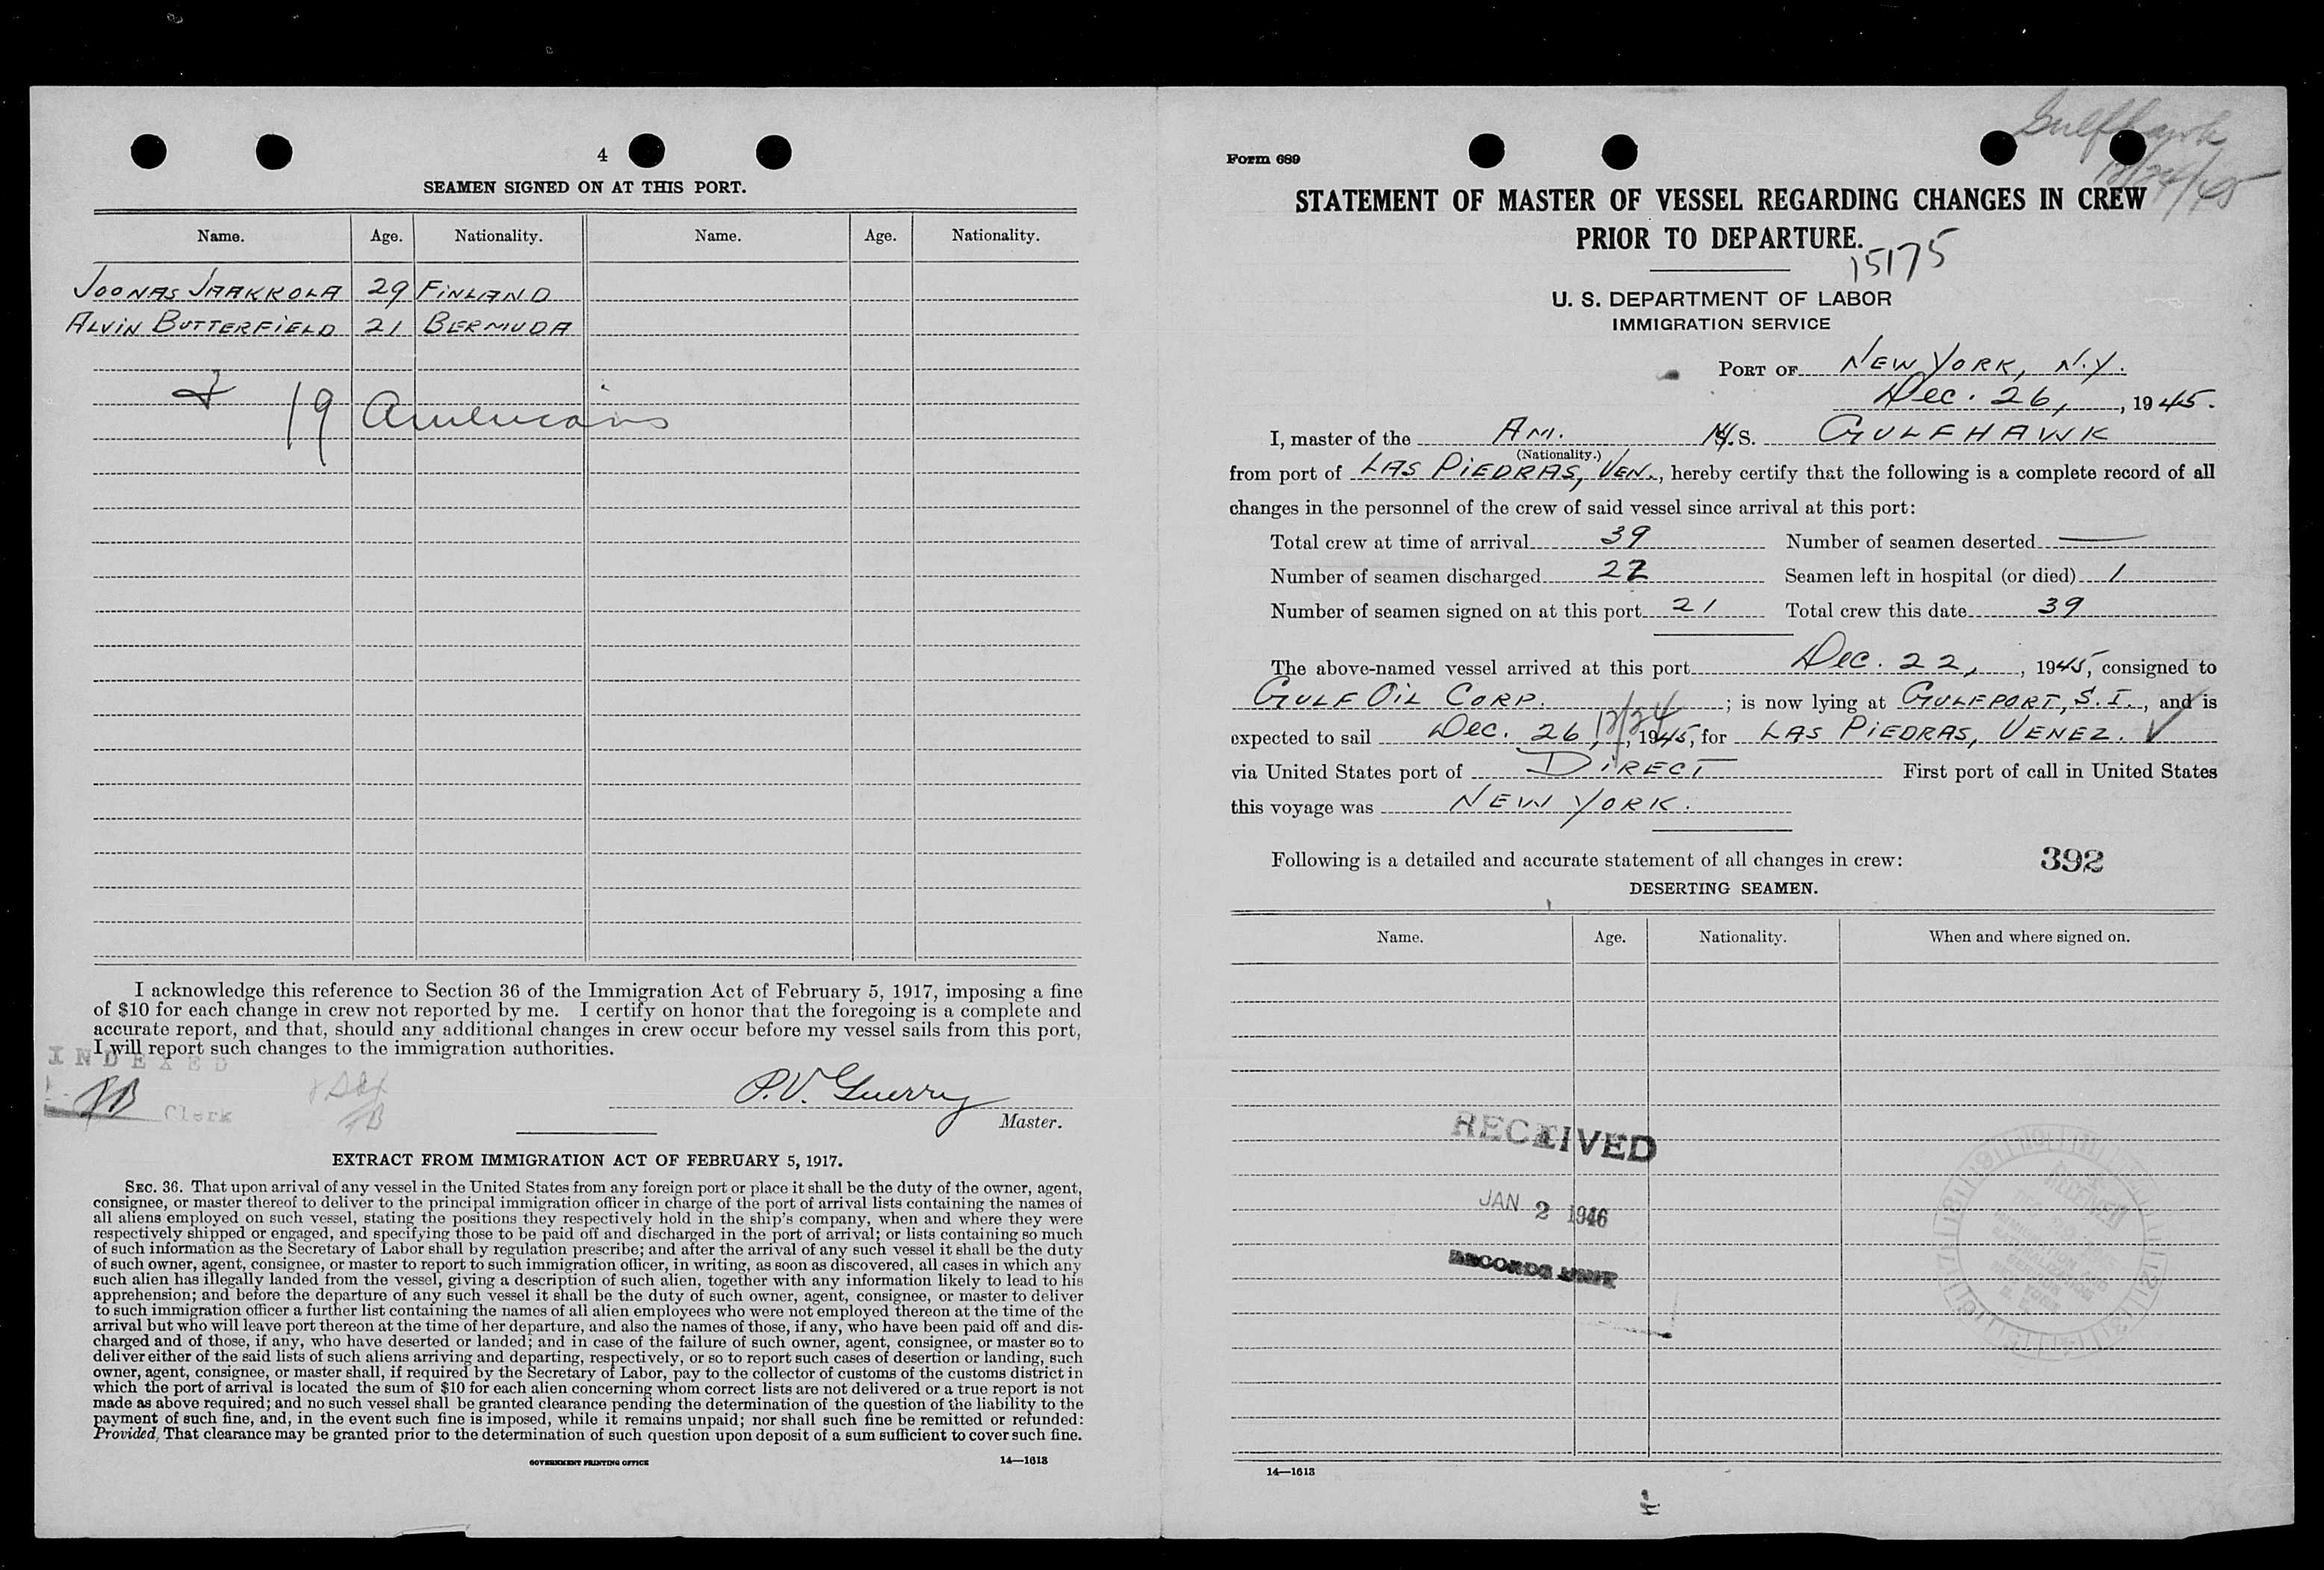 4
SEAMEN SIGNED ON AT THIS PORT.
Name. Age. Nationality. Name. Age. Nationality.
JOONAS JAAKKOLA 29 FINLAND
ALVIN BUTTERFIELD 21 BERMUDA
& 19 Americans
I acknowledge this reference to Section 36 of the Immigration Act of February 5, 1917, imposing a fine
of $10 for each change in crew not reported by me. I certify on honor that the foregoing is a complete and
accurate report, and that, should any additional changes in crew occur before my vessel sails from this port,
I will report such changes to the immigration authorities.
INDEXED
Clerk
P.V. Guerry
Master.
EXTRACT FROM IMMIGRATION ACT OF FEBRUARY 5, 1917.
SEC. 36. That upon arrival of any vessel in the United States from any foreign port or place it shall be the duty of the owner, agent,
consignee, or master thereof to deliver to the principal immigration officer in charge of the port of arrival lists containing the names of
all aliens employed on such vessel, stating the positions they respectively hold in the ship's company, when and where they were
respectively shipped or engaged, and specifying those to be paid off and discharged in the port of arrival; or lists containing so much
of such information as the Secretary of Labor shall by regulation prescribe; and after the arrival of any such vessel it shall be the duty
of such owner, agent, consignee, or master to report to such immigration officer, in writing, as soon as discovered, all cases in which any
such alien has illegally landed from the vessel, giving a description of such alien, together with any information likely to lead to his
apprehension; and before the departure of any such vessel it shall be the duty of such owner, agent, consignee, or master to deliver
to such immigration officer a further list containing the names of all alien employees who were not employed thereon at the time of the
arrival but who will leave port thereon at the time of her departure, and also the names of those, if any, who have been paid off and dis-
charged and of those, if any, who have deserted or landed; and in case of the failure of such owner, agent, consignee, or master so to
deliver either of the said lists of such aliens arriving and departing, respectively, or so to report such cases of desertion or landing, such
owner, agent, consignee, or master shall, if required by the Secretary of Labor, pay to the collector of customs of the customs district in
which the port of arrival is located the sum of $10 for each alien concerning whom correct lists are not delivered or a true report is not
made as above required; and no such vessel shall be granted clearance pending the determination of the question of the liability to the
payment of such fine, and, in the event such fine is imposed, while it remains unpaid; nor shall such fine be remitted or refunded:
Provided, That clearance may be granted prior to the determination of such question upon deposit of a sum sufficient to cover such fine.
GOVERNMENT PRINTING OFFICE 14—1613
Gulfhawk
12/24/45
Form 689
STATEMENT OF MASTER OF VESSEL REGARDING CHANGES IN CREW
PRIOR TO DEPARTURE.
15175
U. S. DEPARTMENT OF LABOR
IMMIGRATION SERVICE
PORT OF NEW YORK, N.Y.
Dec. 26, , 1945.
I, master of the AM. M.S. GULFHAWK
(Nationality.)
from port of LAS PIEDRAS, VEN., hereby certify that the following is a complete record of all
changes in the personnel of the crew of said vessel since arrival at this port:
Total crew at time of arrival 39 Number of seamen deserted —
Number of seamen discharged 22 Seamen left in hospital (or died) 1
Number of seamen signed on at this port 21 Total crew this date 39
The above-named vessel arrived at this port Dec. 22, , 1945, consigned to
GULF OIL CORP. ; is now lying at GULFPORT, S.I., and is
expected to sail Dec. 26, 12/24, 1945, for LAS PIEDRAS, VENEZ. ✓
via United States port of DIRECT First port of call in United States
this voyage was NEW YORK.
Following is a detailed and accurate statement of all changes in crew: 392
DESERTING SEAMEN.
Name. Age. Nationality. When and where signed on.
RECEIVED
JAN 2 1946
RECORDS UNIT
14—1613